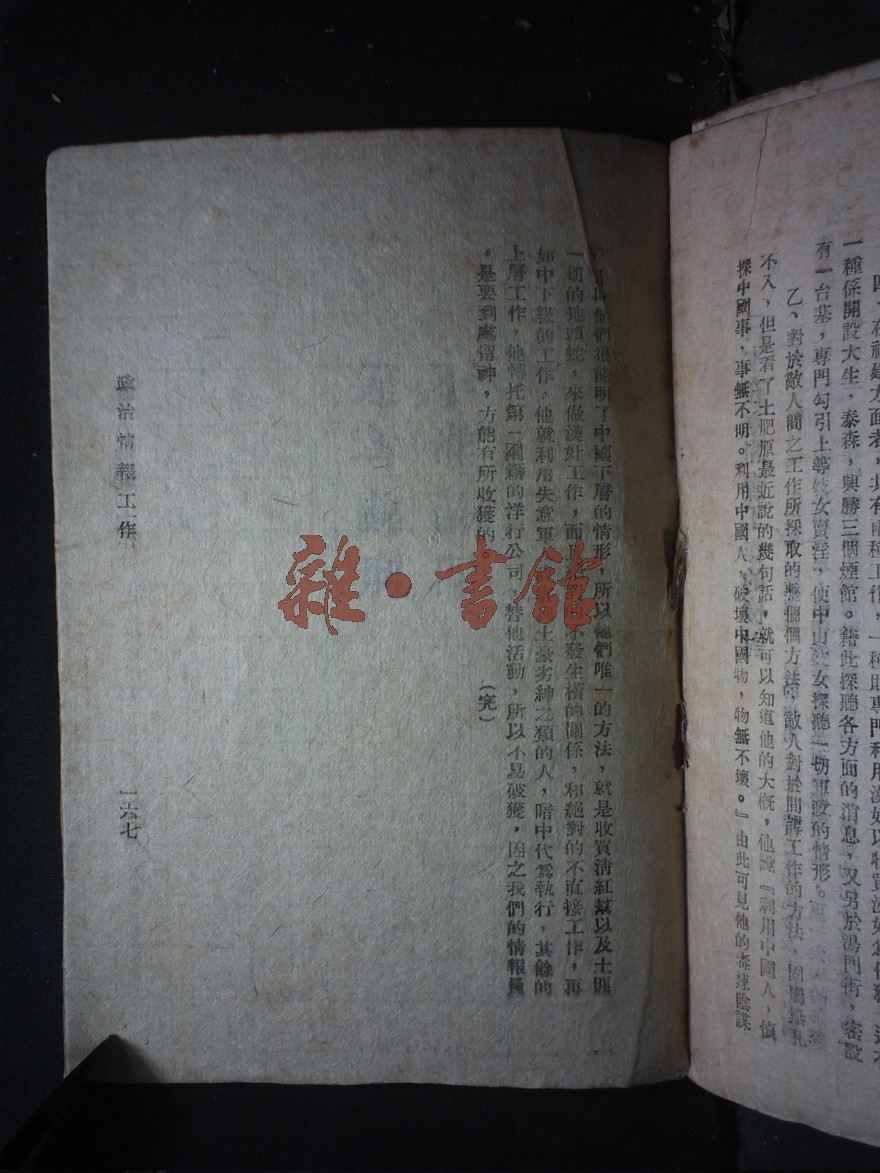 四、在社會方面者，共有兩種工作，一種則專門利用漢奸以收買漢奸為任務，這
一種係開設大生，泰森，與勝三個煙館。藉此探聽各方面的消息，又另於湯門街，密設
有一台基，專門勾引上等妓女賣淫，使中山妓女探聽一切軍政的情形。
乙、對於敵人間之工作所採取的整個個方法，敵人對於間諜工作的方法，固屬無孔
不入，但是看了土肥原最近說的幾句話，就可以知道他的大概，他說『利用中國人，偵
探中國事，事無不明。利用中國人，破壞中國物，物無不壞。』由此可見他的毒辣陰謀
他們很能明了中國下層的情形，所以他們唯一的方法，就是收買清紅幫以及土匪
一切的地頭蛇，來做漢奸工作，而且 不發生橫的關係，和絕對的不直接工作，再
如中下級的工作，他就利用失意軍 土豪劣紳之類的人，暗中代為執行，其餘的
上層工作，他轉托第一國籍的洋行公司，替他活動，所以不易破獲，因之我們的情報員
，是要到處留神，方能有所收獲的。 （完）
政治情報工作
一六七
雜·書館